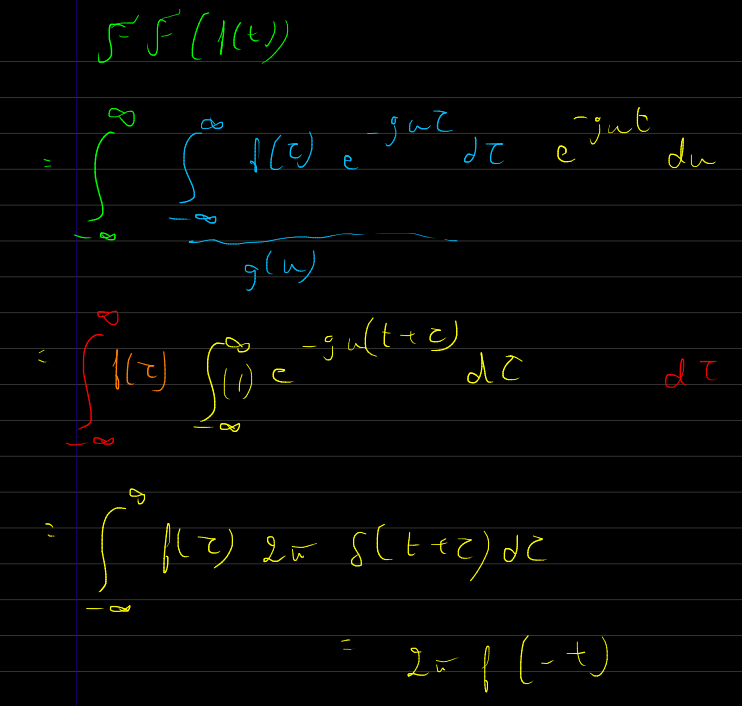 F F (f(t))
= ∫_{-∞}^{∞} ∫_{-∞}^{∞} f(τ) e^{-juτ} dτ e^{-jut} du
g(u)
= ∫_{-∞}^{∞} f(τ) ∫_{-∞}^{∞} (1) e^{-ju(t+τ)} dτ dτ
= ∫_{-∞}^{∞} f(τ) 2π δ(t+τ) dτ
= 2π f(-t)